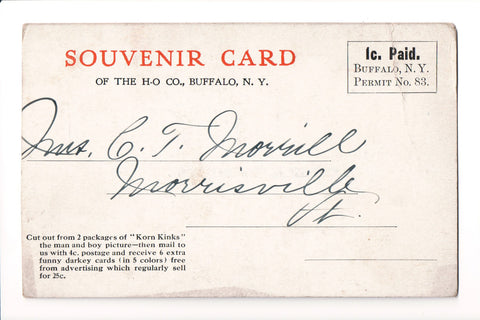 SOUVENIR CARD
OF THE H-O CO., BUFFALO, N. Y.
1c. Paid.
BUFFALO, N. Y.
PERMIT NO. 83.
Mrs. C. T. Morrill
Morrisville
Vt.
Cut out from 2 packages of "Korn Kinks"
the man and boy picture—then mail to
us with 4c. postage and receive 6 extra
funny darkey cards (in 5 colors) free
from advertising which regularly sell
for 25c.